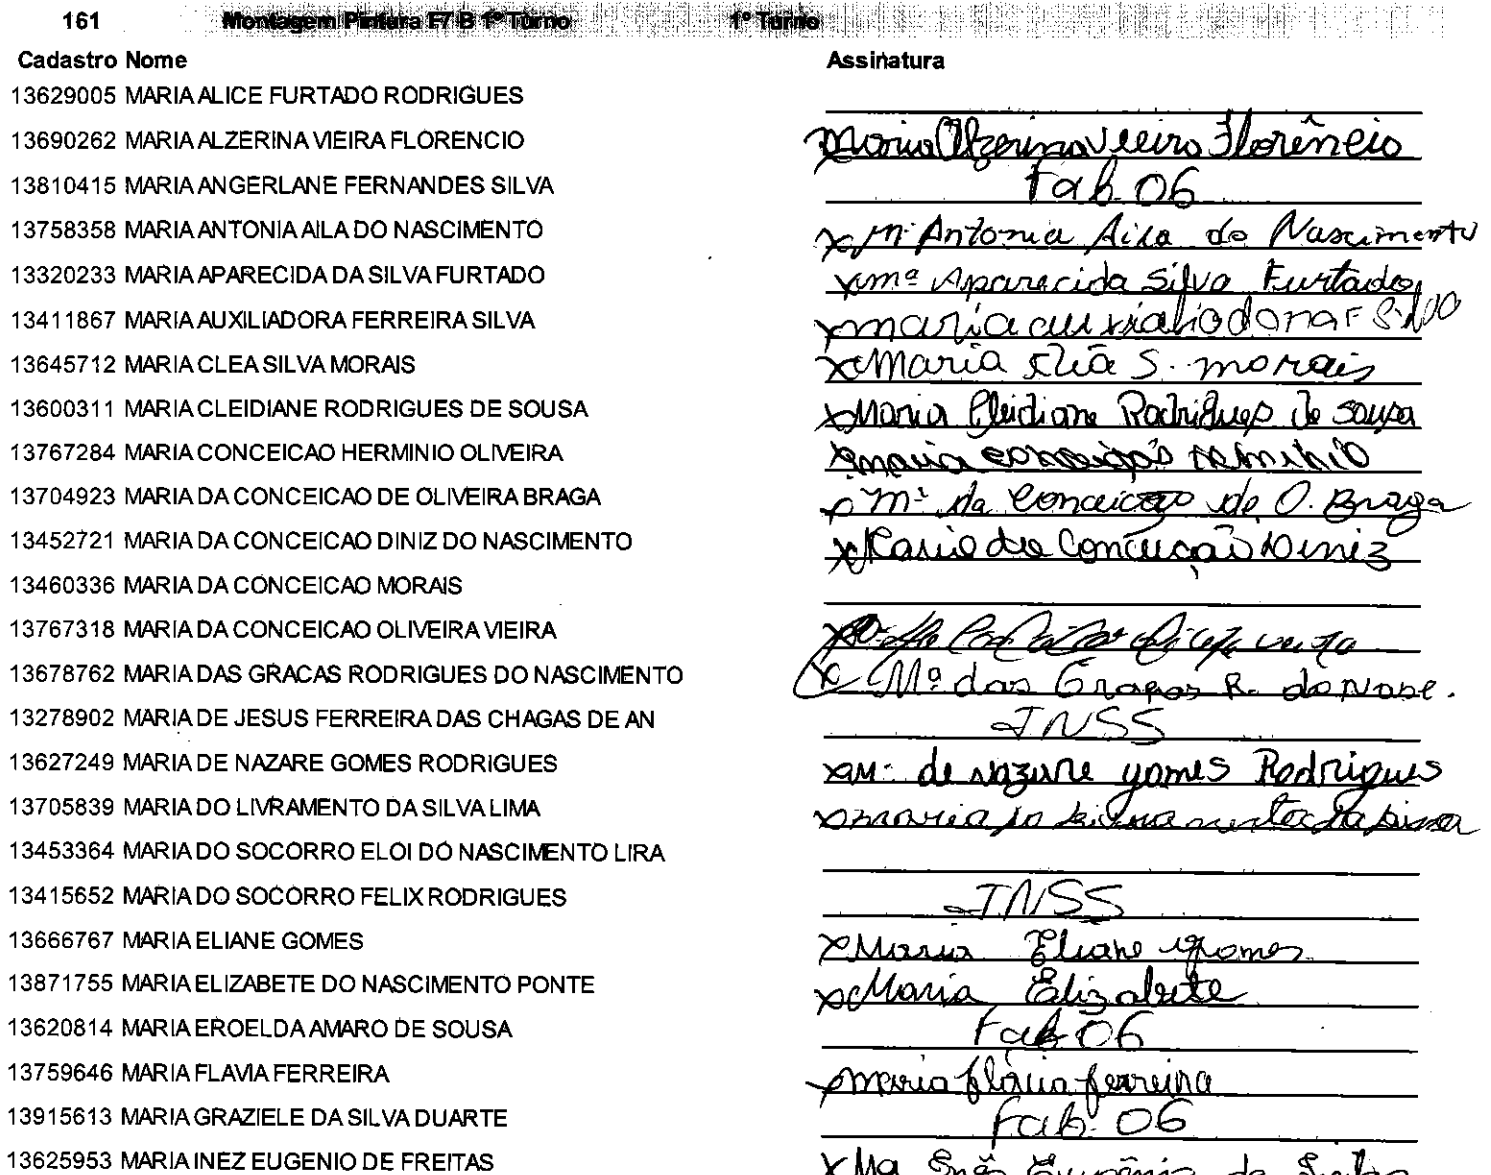 161 Montagem Pintura F7 B 1º Turno 1º Turno
Cadastro Nome Assinatura
13629005 MARIA ALICE FURTADO RODRIGUES
13690262 MARIA ALZERINA VIEIRA FLORENCIO Maria Alzerina Vieira Florêncio
13810415 MARIA ANGERLANE FERNANDES SILVA Fab. 06
13758358 MARIA ANTONIA AILA DO NASCIMENTO x Mª Antonia Aila do Nascimento
13320233 MARIA APARECIDA DA SILVA FURTADO x mª Aparecida Silva Furtado
13411867 MARIA AUXILIADORA FERREIRA SILVA x maria F Silva
13645712 MARIA CLEA SILVA MORAIS x Maria S. morais
13600311 MARIA CLEIDIANE RODRIGUES DE SOUSA x Maria Cleidiane Rodrigues de sousa
13767284 MARIA CONCEICAO HERMINIO OLIVEIRA x maria
13704923 MARIA DA CONCEICAO DE OLIVEIRA BRAGA x mª da Conceição de O. Braga
13452721 MARIA DA CONCEICAO DINIZ DO NASCIMENTO x Maria da Conceição Diniz
13460336 MARIA DA CONCEICAO MORAIS
13767318 MARIA DA CONCEICAO OLIVEIRA VIEIRA x
13678762 MARIA DAS GRACAS RODRIGUES DO NASCIMENTO x Mª das Graças R. do Nasc.
13278902 MARIA DE JESUS FERREIRA DAS CHAGAS DE AN INSS
13627249 MARIA DE NAZARE GOMES RODRIGUES x M. de Nazare gomes Rodrigues
13705839 MARIA DO LIVRAMENTO DA SILVA LIMA x maria do
13453364 MARIA DO SOCORRO ELOI DO NASCIMENTO LIRA
13415652 MARIA DO SOCORRO FELIX RODRIGUES INSS
13666767 MARIA ELIANE GOMES x Maria Eliane Gomes
13871755 MARIA ELIZABETE DO NASCIMENTO PONTE x Maria Elizabete
13620814 MARIA EROELDA AMARO DE SOUSA Fab 06
13759646 MARIA FLAVIA FERREIRA x maria flávia ferreira
13915613 MARIA GRAZIELE DA SILVA DUARTE Fab. 06
13625953 MARIA INEZ EUGENIO DE FREITAS x Ma Inês Eugênio de Freitas